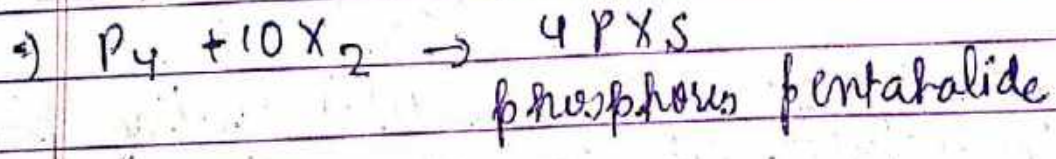 ⇒) P₄ + 10 X₂ → 4 PX5
phosphorus pentahalide